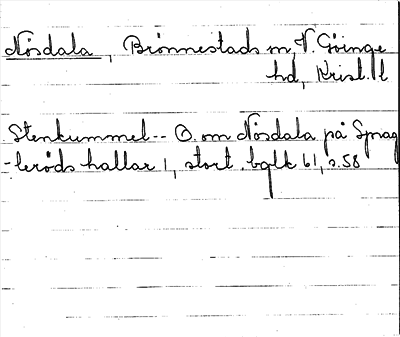 Nösdala, Brönnestads sn, V. Göinge
hd, Krist. l
Stenkummel-- O. om Nösdala på Sprag
-leröds hallar 1, stort. bglk 61, s. 58